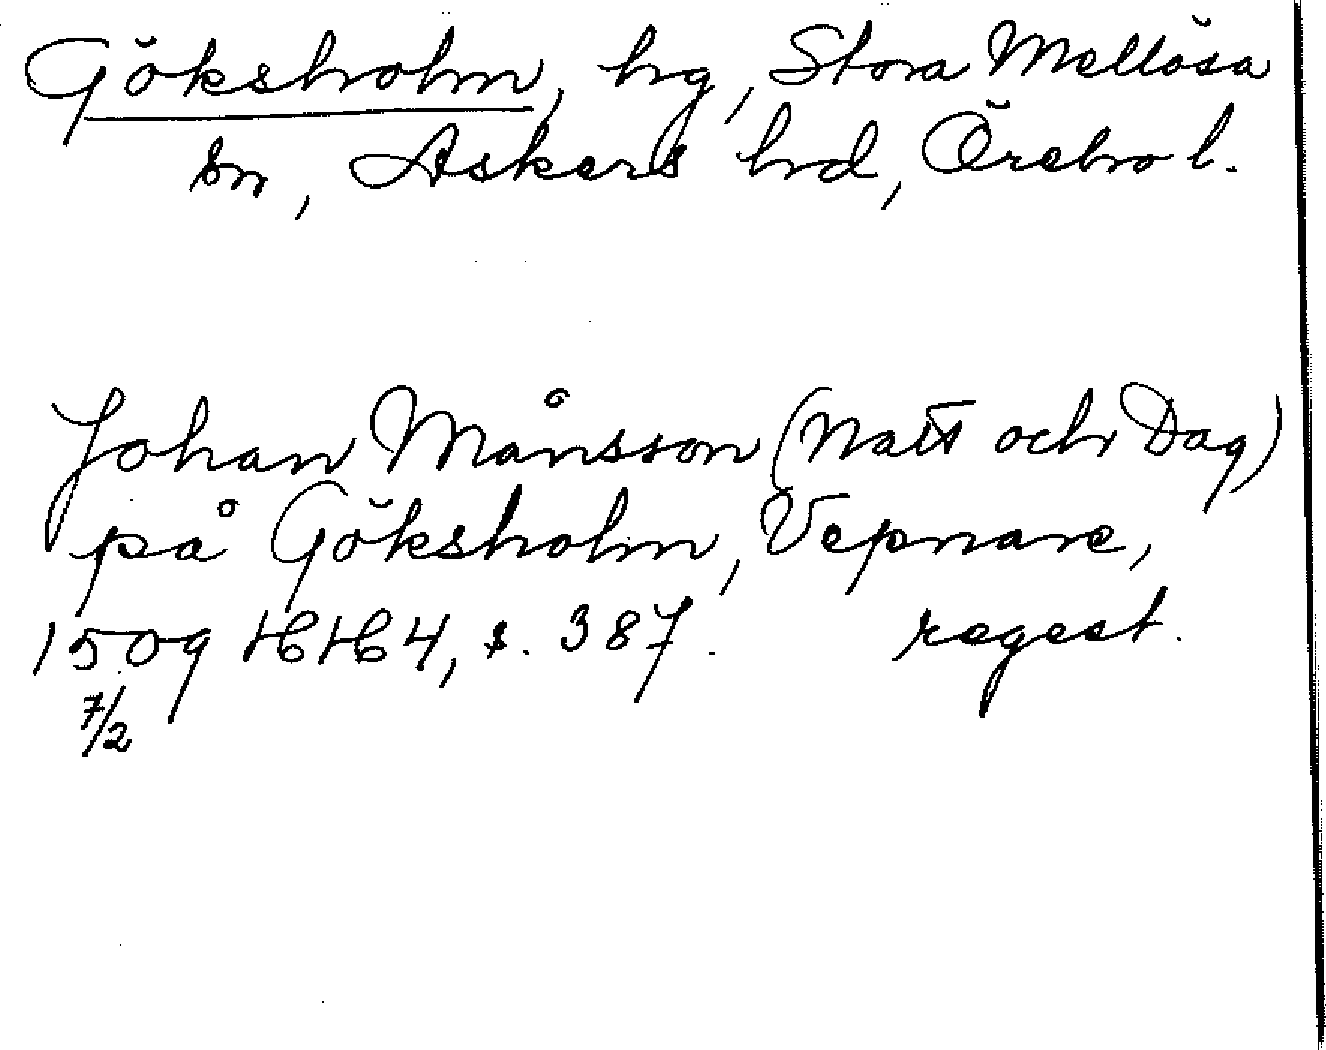 Göksholm, hg, Stora Mellösa
sn, Askers hrd, Örebro l.
Johan Månsson (Natt och Dag)
på Göksholm, Vepnare,
1509 HH 4, s. 387. regest.
7/2